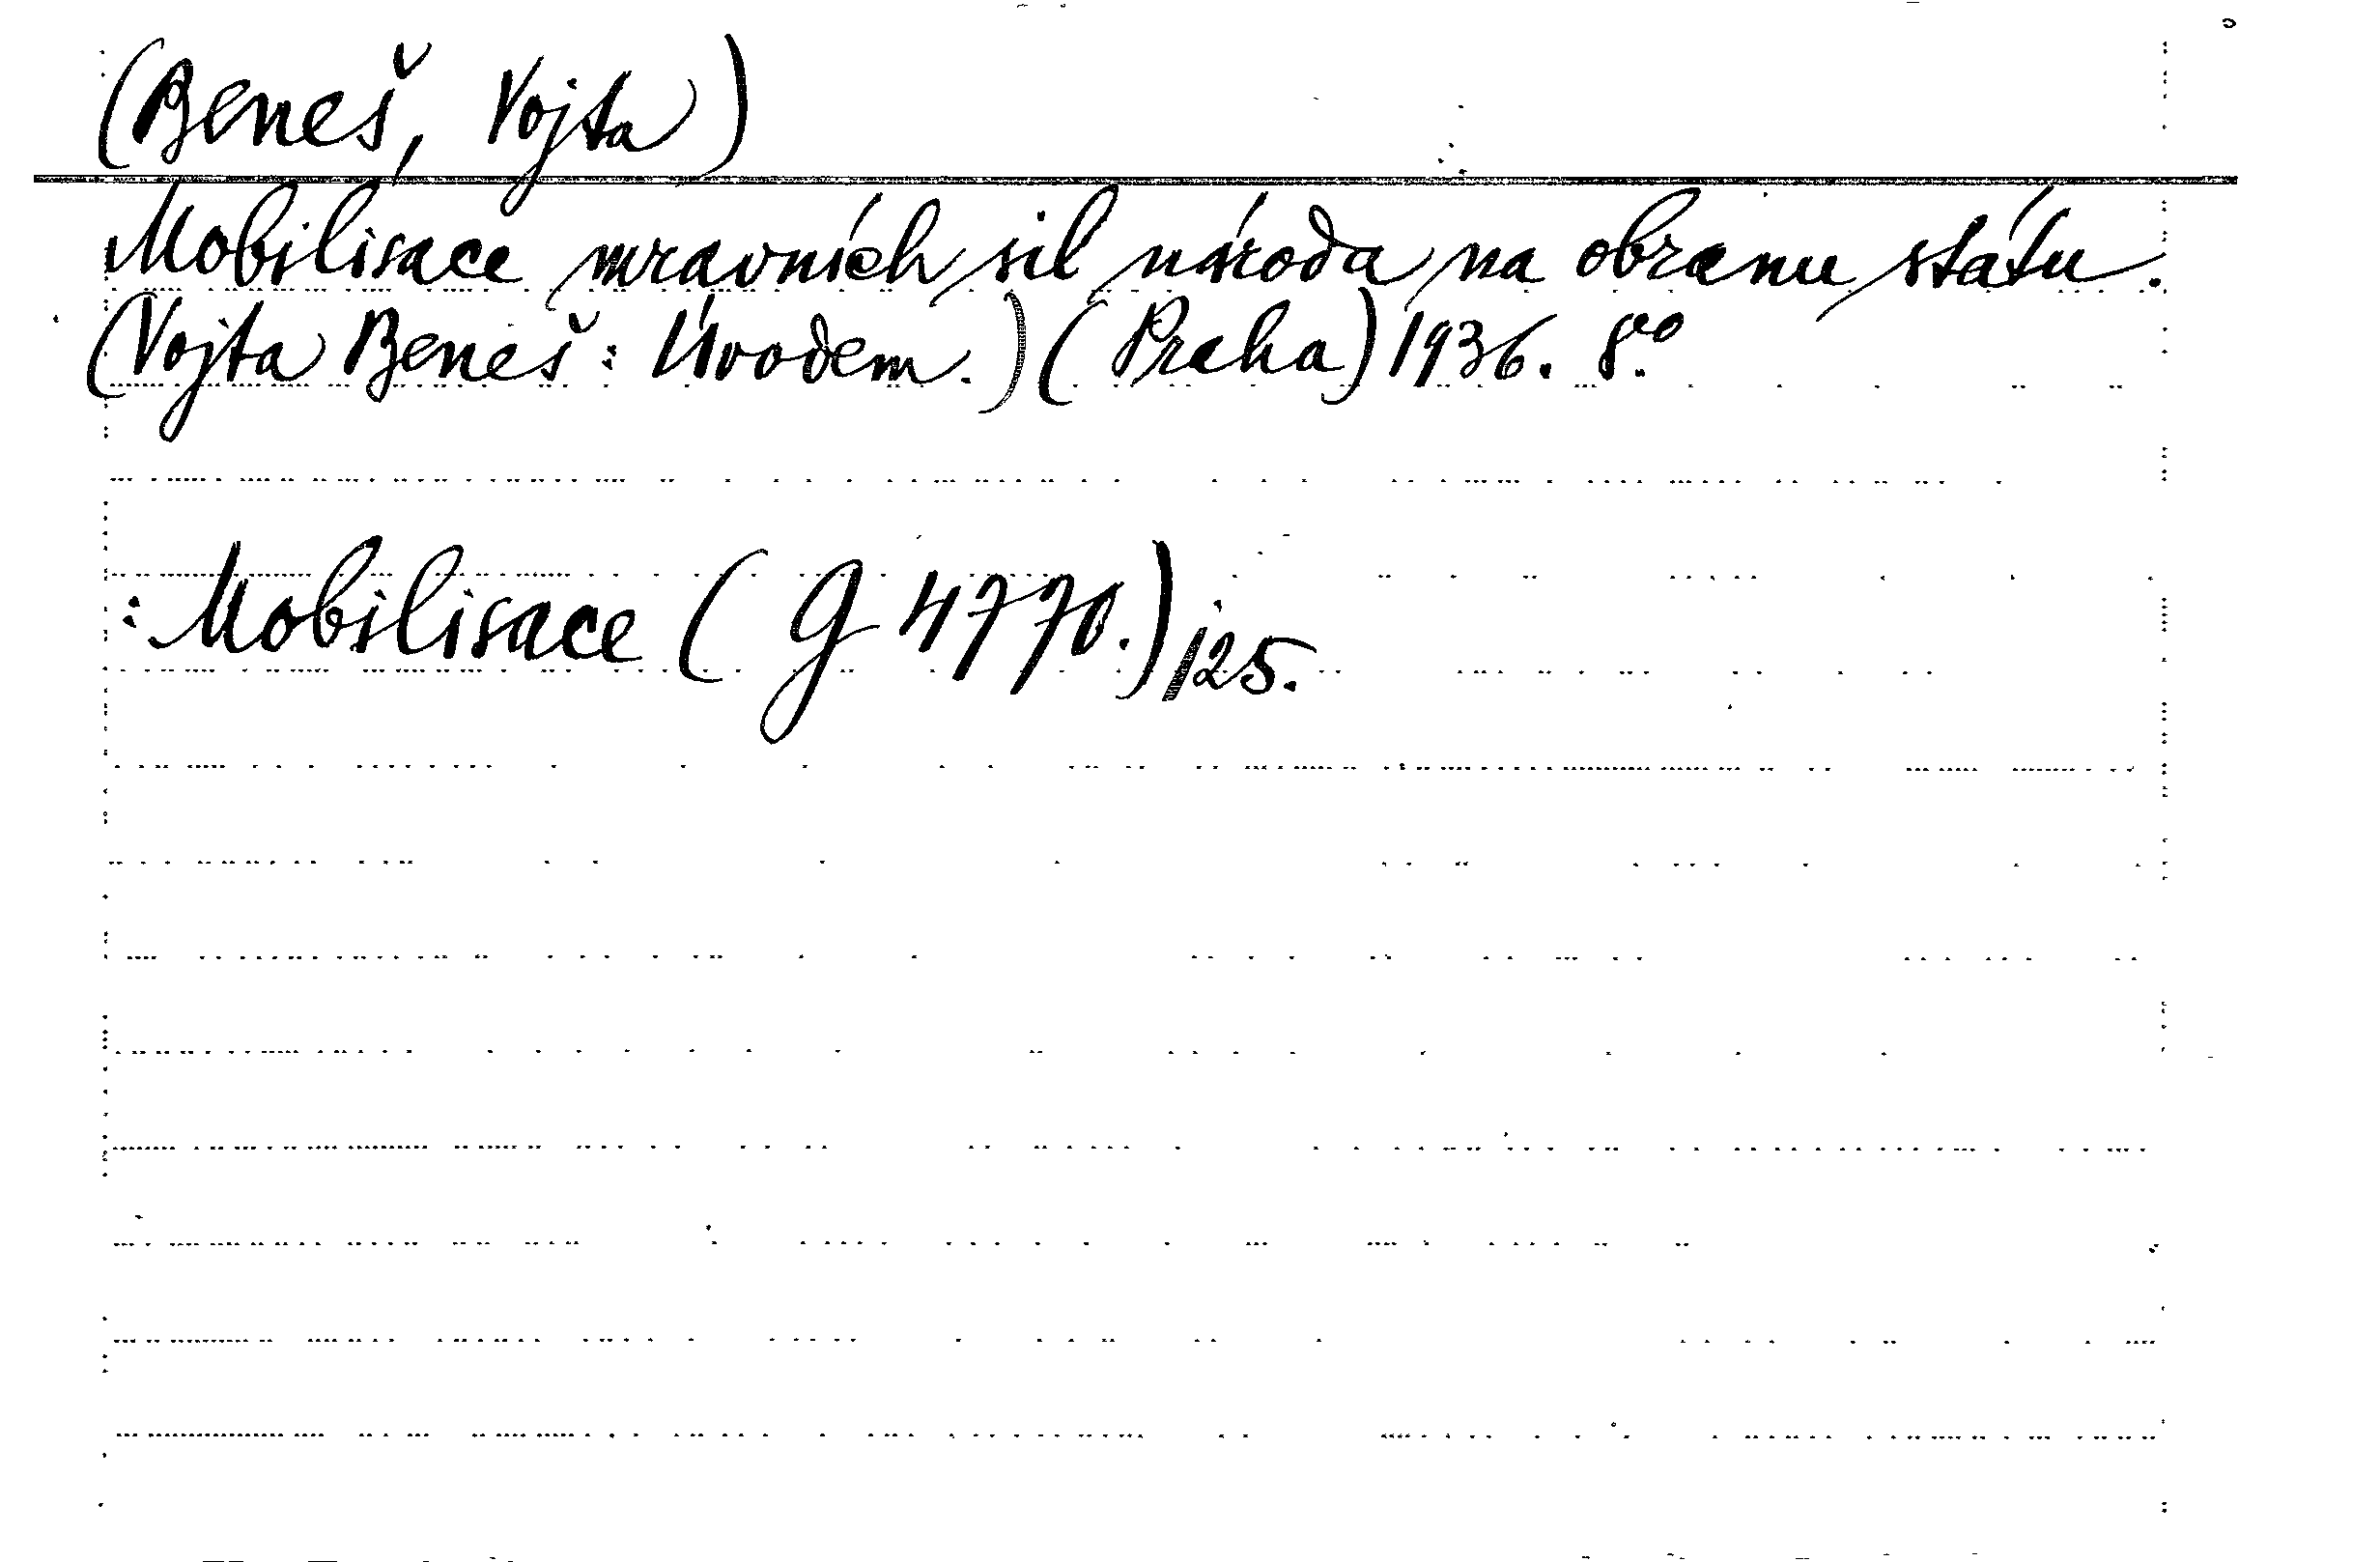 (Beneš, Vojta)
Mobilisace mravních sil národa na obranu státu.
(Vojta Beneš: Úvodem.) (Praha) 1936. 8°.
: Mobilisace (G 4770.) /25.